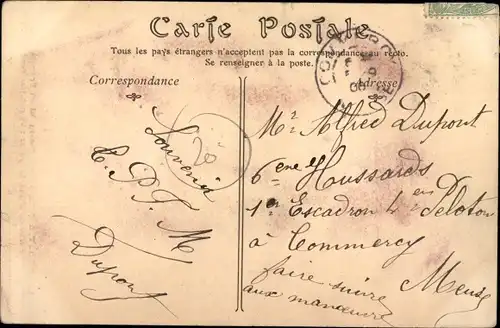 Carte Postale
Tous les pays étrangers n'acceptent pas la correspondance au recto.
Se renseigner à la poste.
Correspondance
Adresse
COMMERCY
Souvenir
20
Dupont
Mr Alfred Dupont
6ème Houssards
1er Escadron 4em Peloton
à Commercy
faire suivre
Meuse
aux manœuvre